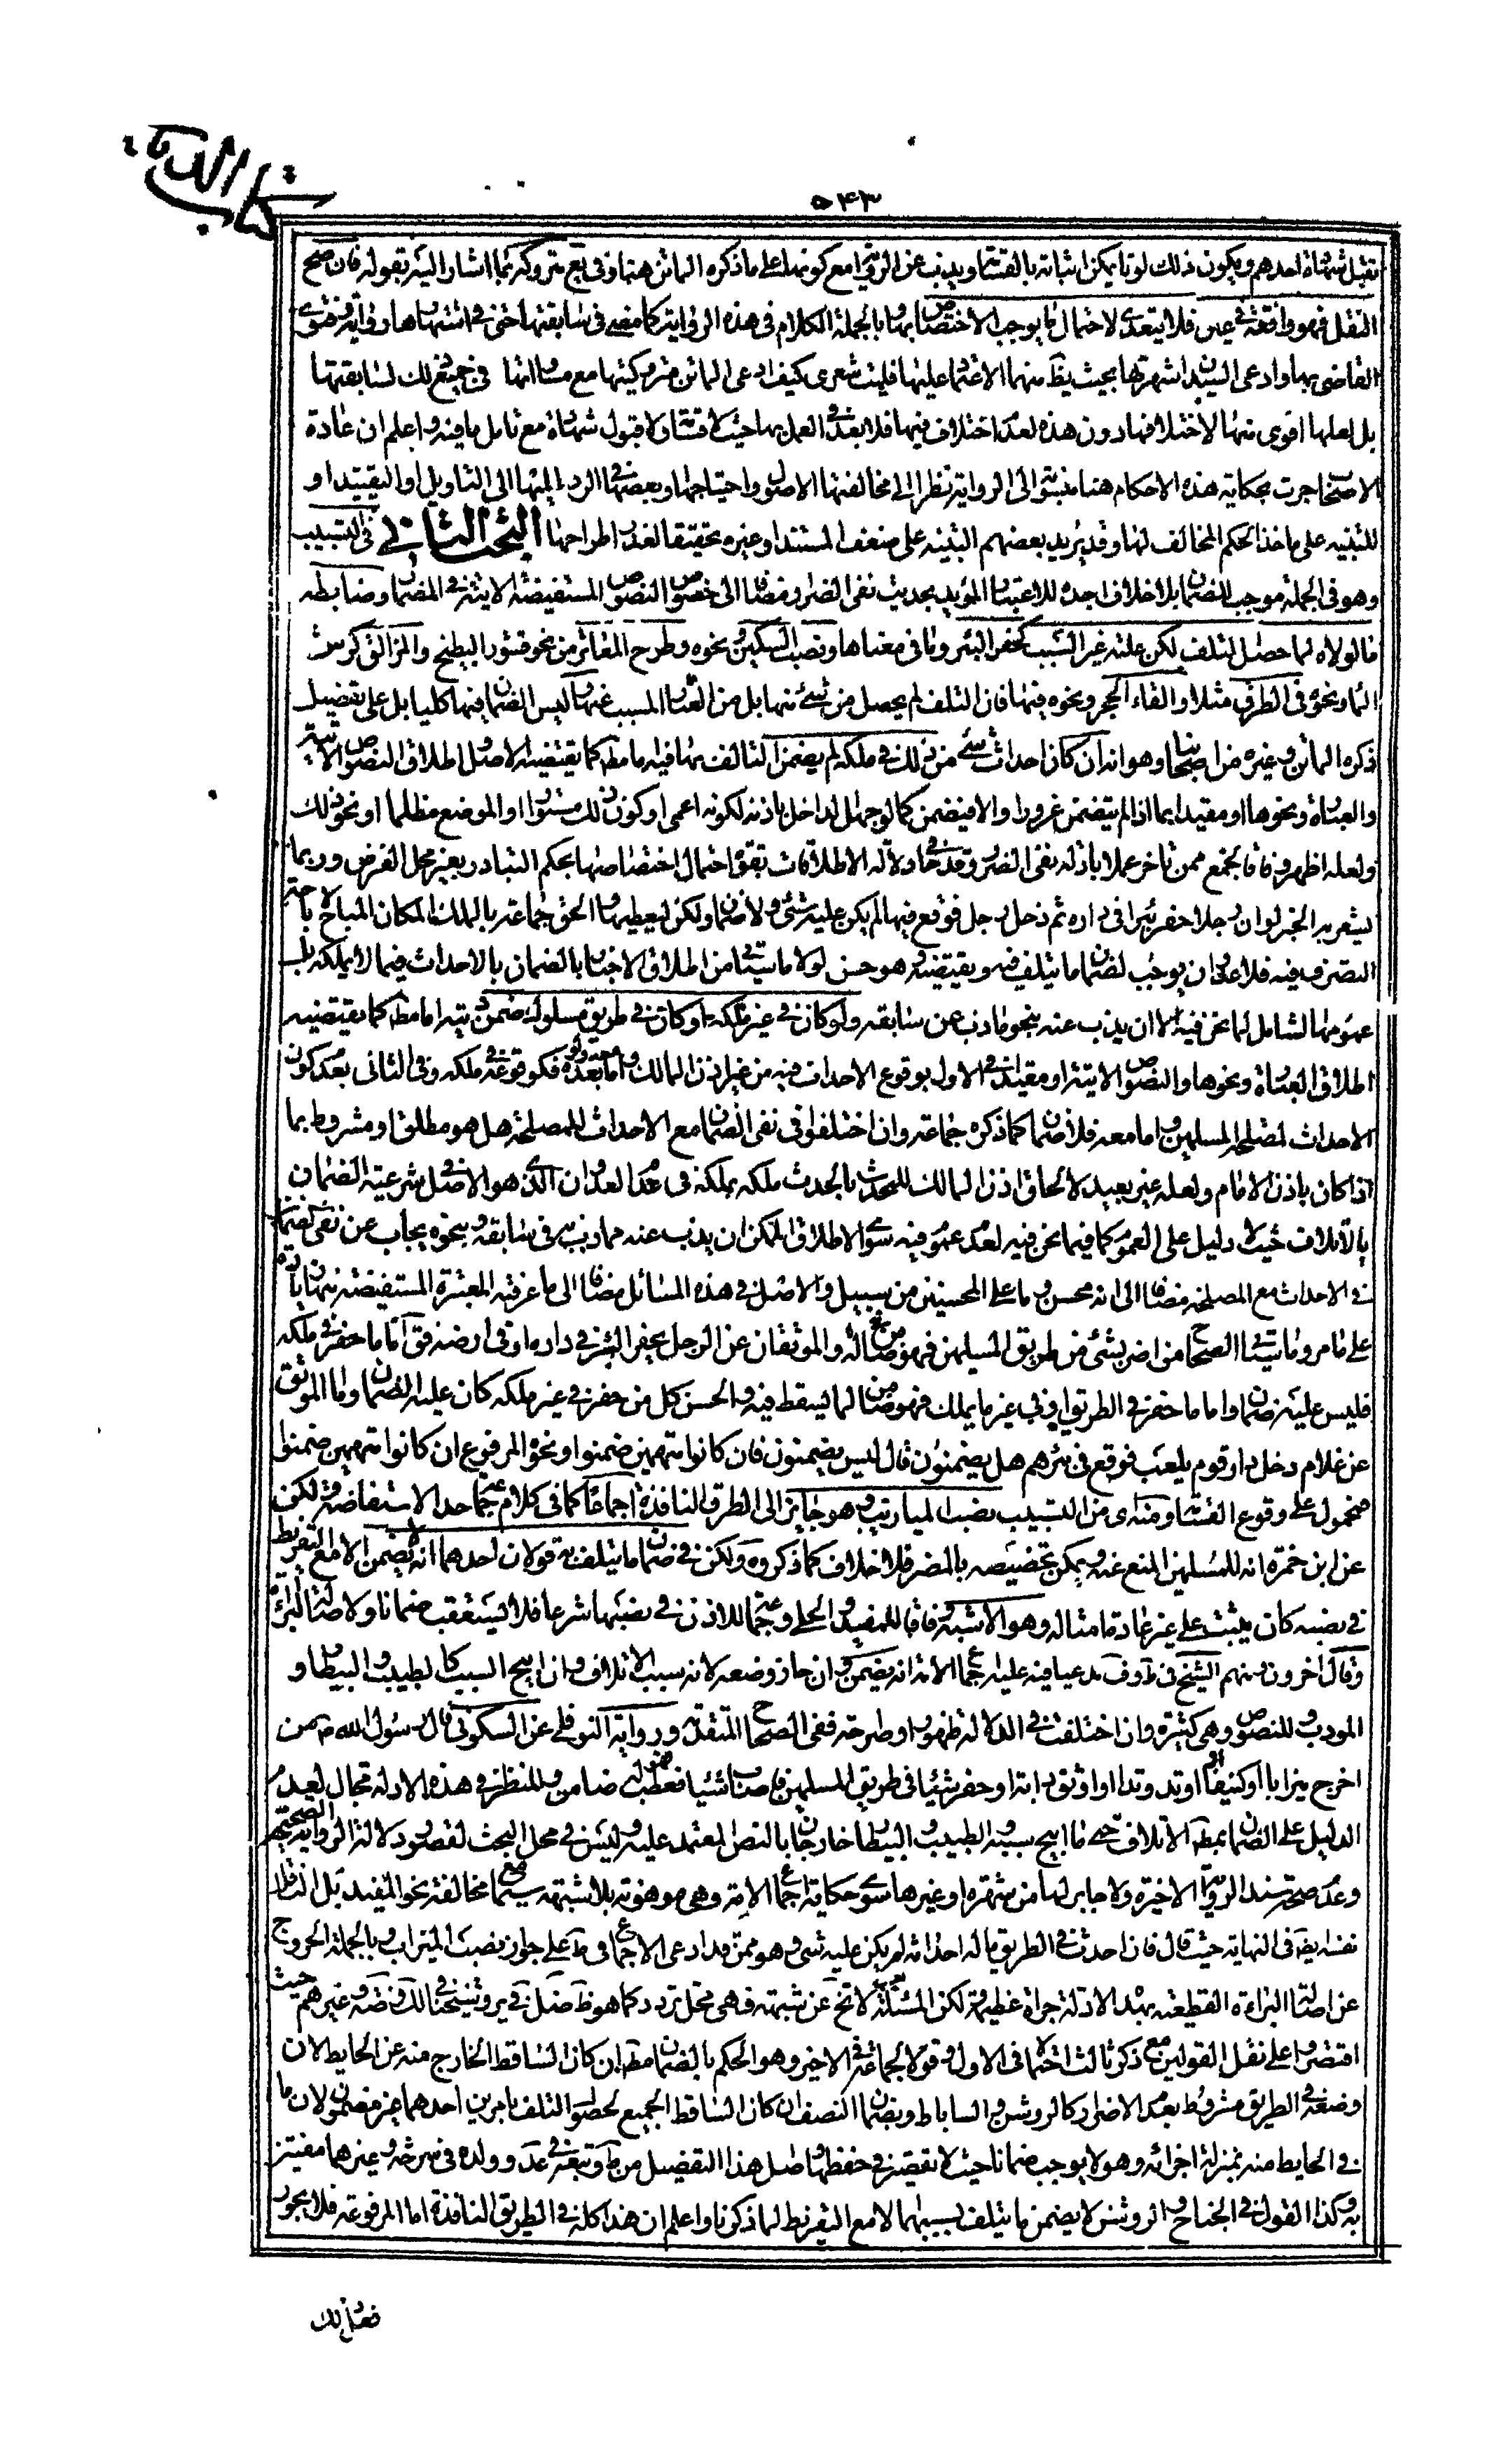 كتاب الديات
٥۴٣
تقبل شهادة احدهم ويكون ذلك لوثا يمكن اثباته بالقسامة ويذب عن الرواية مع كونها على ما ذكره الماتن هنا وفي يع متروكة بما اشار اليه بقوله فان صح
النقل فهو واقعة في عين فلا يتعدى لاحتمال ما يوجب الاختصاص بها وبالجملة الكلام في هذه الرواية كما مضى في سابقتها حتى في اشتهارها وفي
القاضي بها وادعى السيدان شهرتها بحيث يظهر منهما الاعتماد عليها فليت شعري كيف ادعى الماتن متروكيتها مع مساواتها في جميع ذلك لسابقتها
بل لعلها اقوى منها لاختلافها دون هذه لعدم اختلاف فيها فلا بعد في العمل بها حيث لا قسامة ولا قبول شهادة مع تامل ما فيه واعلم ان عادة
الاصحاب جرت بحكاية هذه الاحكام هنا منسوبة الى الرواية نظرا الى مخالفتها الاصول واحتياجها وبعضها في الرد اليها الى التاويل او التقييد او
للتنبيه على ماخذ الحكم المخالف لها وقد يريد بعضهم التنبيه على ضعف المستند او غيره تحقيقا لعذر اطراحها البحث الثاني في التسبيب
وهو في الجملة موجب للضمان بلا خلاف اجده للاعتبار المؤيد بحديث نفي الضرر مضافا الى خصوص النصوص المستفيضة الاتية في المضمار وضابطه
ما لولاه لما حصل التلف لكن علته غير السبب كحفر البئر وما في معناها ونصب السكين ونحوه وطرح المعاثر من نحو قشور البطيخ والمزالق كرش
الماء ونحوه في الطرق مثلا والقاء الحجر ونحوه فيها فان التلف لم يحصل من شئ منها بل من العثار المسبب عنها وليس الضمان فيها كليا بل على تفصيل
ذكره الماتن وغيره من اصحابنا وهو انه ان كان احداث شئ من ذلك في ملكه لم يضمن التالف بها فيه مط كما يقتضيه الاصل واطلاق النصوص الاتية
والعبارة ونحوها او مقيدا بما اذا لم يتضمن غرورا والا فيضمن كما لو جهل الداخل باذنه لكونه اعمى او كون ذلك مستورا او الموضع مظلما او نحو ذلك
ولعله اظهر وفاقا لجمع ممن تاخر عملا بادلة نفي الضرر وقدحا في دلالة الاطلاقات بقوة احتمال اختصاصها بحكم التبادر بغير محل الفرض وربما
يشعر به الخبر لو ان رجلا حفر بئرا في داره ثم دخل رجل فوقع فيها لم يكن عليه شئ ولا ضمان ولكن ليعطيها والحق جماعة بالملك المكان المباح لاباحة
التصرف فيه فلا عدوان يوجب لضمان ما يتلف فيه وبقيته وهو حسن لولا ما سيأتي من اطلاق الاخبار بالضمان بالاحداث فيما لا يملكه بل
عمومها الشامل لما نحن فيه الا ان يذب عنه بنحو ما ذب عن سابقه ولو كان في غير ملكه او كان في طريق مسلوك ضمن ديته اما مط كما يقتضيه
اطلاق العبارة ونحوها والنصوص الاتية او مقيدا في الاول بوقوع الاحداث فيه من غير اذن المالك واما معه ولو بعده فكوقوعه في ملكه وفي الثاني بعدم كون
الاحداث لمصلحة المسلمين واما معه فلا ضمان كما ذكره جماعة وان اختلفوا في نفي الضمان مع الاحداث للمصلحة هل هو مطلق او مشروط بما
اذا كان باذن الامام ولعله غير بعيد لالحاق اذن المالك للمحدث بالحدث ملكه بملكه في عدم العدوان الذي هو الاصل في شرعية الضمان
بالاتلاف حيث لا دليل على العموم كما فيما نحن فيه لعدم عموم فيه سوى الاطلاق الممكن ان يذب عنه بما ذب به في سابقه وبنحوه يجاب عن نفي الضمان
في الاحداث مع المصلحة مضافا الى انه محسن وما على المحسنين من سبيل والاصل في هذه المسائل مضافا الى ما عرفته المعتبرة المستفيضة منها زيادة
على ما مر وما سيأتي الصحاح من اضر بشئ من طريق المسلمين فهو ضامن له والموثقان عن الرجل يحفر البئر في داره او في ارضه فق اما ما حفر في ملكه
فليس عليه ضمان واما ما حفر في الطريق او في غير ما يملك فهو ضامن لما يسقط فيه والحسن كل من حفر في غير ملكه كان عليه الضمان واما الموثق
عن غلام دخل دار قوم يلعب فوقع في بئرهم هل يضمنون قال ليس يضمنون فان كانوا متهمين ضمنوا ونحوه المرفوع ان كانوا متهمين ضمنوا
فمحمول على وقوع القسامة ومنه اى من التسبيب نصب الميازيب وهو جائز الى الطرق النافذة اجماعا كما في كلام جماعة حد الاستفاضة ولكن
عن ابن حمزة انه للمسلمين المنع عنه ويمكن تخصيصه بالمضر فلا خلاف كما ذكروه ولكن في ضمان ما يتلف به قولان احدهما انه لا يضمن الا مع التفريط
في نصبه كان يثبت على غير عادة امثاله وهو الاشبه وفاقا للمفيد والحلي وجماعة للاذن في نصبها شرعا فلا يستعقب ضمانا ولاصالة البراءة
وقال اخرون ومنهم الشيخ في ط وف مدعيا فيه عليه اجماع الامة انه يضمن وان جاز وضعه لانه سبب الاتلاف وان ابيح السبب كالطبيب والبيطار و
المودب وللنصوص وهي كثيرة وان اختلفت في الدلالة ظهورا وصراحة ففي الصحاح المتقدمة ورواية النوفلي عن السكوني قال رسول الله ص من
اخرج ميزابا او كنيفا او اوتد وتدا او اوثق دابة او حفر شيئا في طريق المسلمين فاصاب شيئا فعطب فهو له ضامن وللنظر في هذه الادلة مجال لعدم
الدليل على الضمان بمطلق الاتلاف حتى ما ابيح سببه والطبيب والبيطار خارجان بالنص المعتمد عليه وليس في محل البحث لقصور دلالة الرواية الصحيحة
وعدم صحة سند الرواية الاخيرة ولا جابر لها من شهرة او غيرها سوى حكاية اجماع الامة وهي موهونة بلا شبهة سيما مع مخالفة نحو المفيد بل الناقل
نفسه ايضا في النهاية حيث قال فان احدث في الطريق ما له احداثه لم يكن عليه شئ وهو ممن قد ادعى الاجماع في ط على جواز نصب الميزاب وبالجملة الخروج
عن اصالة البراءة القطعية بهذه الادلة جراة عظيمة لكن المسئلة بعد لا تخ عن شبهة فهي محل تردد كما هو ظ فضل في ير وشيخنا في لك وضه وغيرهم حيث
اقتصروا على نقل القولين مع ذكر ثالث احتمالا في الاول وقولا لجماعة في الاخير وهو الحكم بالضمان مط ان كان الساقط الخارج منه عن الحايط لان
وضعه في الطريق مشروط بعدم الاضرار كالروشن والساباط وبضمان النصف ان كان الساقط الجميع لحصول التلف بامرين احدهما غير مضمون لان ما
في الحايط منه بمنزلة اجزائه وهو لا يوجب ضمانا حيث لا تقصير في حفظها واصل هذا التفصيل من ط وتبعه في عد وولده في شرحه وغيرهما مفتين
به وكذا القول في الجناح والروشن لا يضمن ما يتلف بسببهما الا مع التفريط لما ذكرنا واعلم ان هذا كله في الطريق النافذة اما المرفوعة فلا يجوز
فعل ذلك